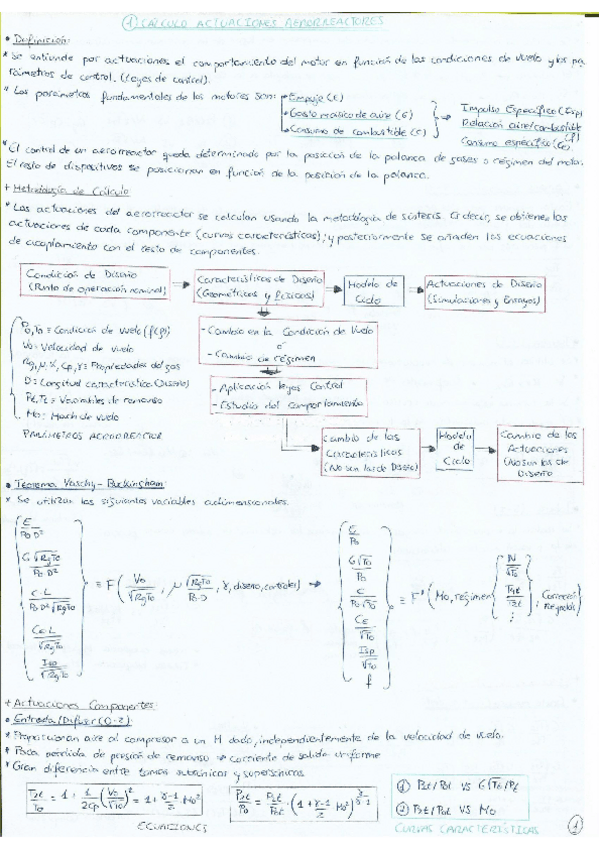 ① CÁLCULO ACTUACIONES AERORREACTORES
• Definición:
* Se entiende por actuaciones el comportamiento del motor en función de las condiciones de vuelo y los pa
rámetros de control. (Leyes de control).
* Los parámetros fundamentales de los motores son:
→ Empuje (E)
→ Gasto másico de aire (G)
→ Consumo de combustible (C)
Impulso Específico (Isp)
Relación aire/combustible (f)
Consumo específico (CE)
* El control de un aerorreactor queda determinado por la posición de la palanca de gases o régimen del motor.
El resto de dispositivos se posicionan en función de la posición de la palanca.
+ Metodología de Cálculo
* Las actuaciones del aerorreactor se calculan usando la metodología de síntesis. Es decir, se obtienen las
actuaciones de cada componente (curvas características), y posteriormente se añaden las ecuaciones
de acoplamiento con el resto de componentes.
Condición de Diseño
(Punto de operación nominal)
Características de Diseño
(Geométricas y físicas)
Modelo de
Ciclo
Actuaciones de Diseño
(Simulaciones y Ensayos)
P0, T0 ≡ Condición de vuelo
V0 ≡ Velocidad de vuelo
Rg, μ, Cp, γ ≡ Propiedades del gas
D ≡ Longitud característica (Diseño)
Pt, Tt ≡ Variables de remanso
M0 ≡ Mach de vuelo
PARÁMETROS AERORREACTOR
- Cambio en la Condición de Vuelo
ó
- Cambio de régimen
- Aplicación leyes Control
- Estudio del comportamiento
Cambio de las
Características
(No son las de Diseño)
Modelo
de
Ciclo
Cambio de las
Actuaciones
(No son las de
Diseño)
• Teorema Vaschy-Buckingham:
* Se utilizan las siguientes variables adimensionales.
E / P0 D²
G √RgT0 / P0 D²
C·L / P0 D² √RgT0
CE·L / √RgT0
Isp / √RgT0
≡ F ( V0 / √RgT0 , μ √RgT0 / P0·D , γ, diseño, controles ) →
E / P0
G√T0 / P0
C / P0√T0
CE / √T0
Isp / √T0
f
≡ F' ( M0, régimen { N / √T0
⋮
; Corrección
Reynolds )
+ Actuaciones Componentes:
• Entrada/Difusor (0-2):
* Proporcionan aire al compresor a un M dado, independientemente de la velocidad de vuelo.
* Poca pérdida de presión de remanso → corriente de salida uniforme
* Gran diferencia entre tomas subsónicas y supersónicas
T2t / T0 = 1 + 1 / 2Cp (V0 / √T0)² = 1 + γ-1 / 2 M0²
P2t / P0 = P2t / P0t · (1 + γ-1 / 2 M0²)^γ/γ-1
① P2t/P0t VS G√T0/Pt
② P2t/P0t VS M0
ECUACIONES
CURVAS CARACTERÍSTICAS
①